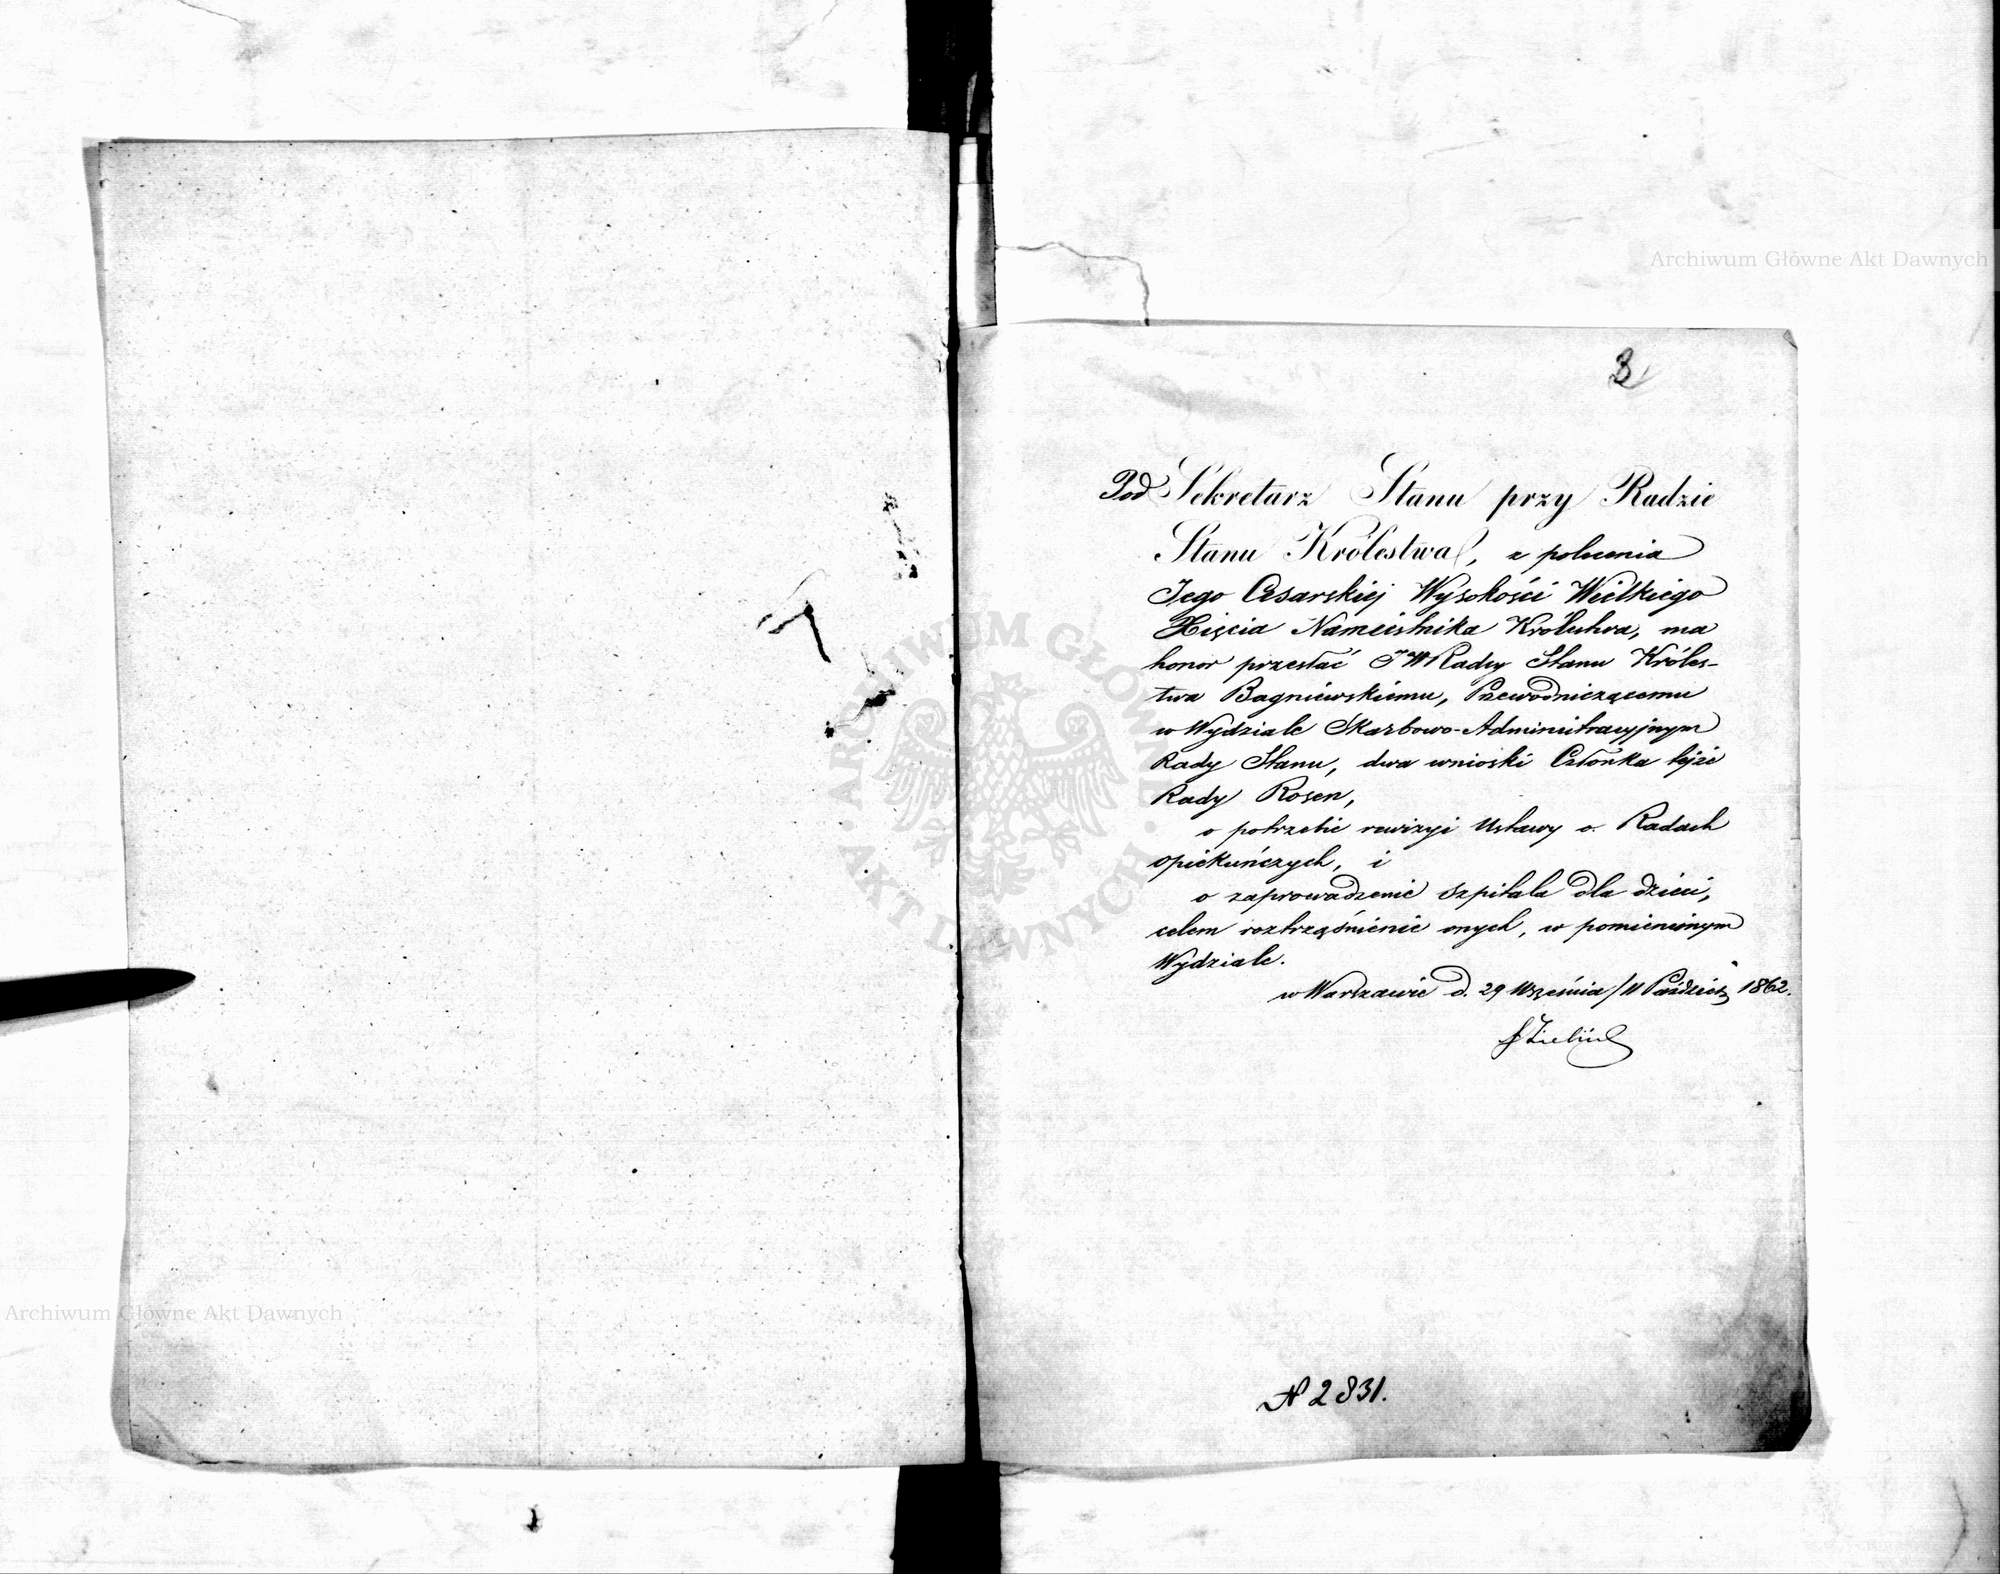 3
Pod Sekretarz Stanu przy Radzie
Stanu Królestwa, z polecenia
Jego Cesarskiej Wysokości Wielkiego
Xięcia Namiestnika Królestwa, ma
honor przesłać JW Radcy Stanu Króles-
twa Bagniewskiemu, Przewodniczącemu
w Wydziale Skarbowo-Administracyjnym
Rady Stanu, dwa wnioski Członka tejże
Rady Rosen,
o potrzebie rewizyi Ustawy o Radach
opiekuńczych, i
o zaprowadzenie szpitala dla dzieci,
celem roztrząśnienie onych, w pomienionym
Wydziale.
w Warszawie d. 29 Września/11 Paździer 1862.
N 2831.
Archiwum Główne Akt Dawnych
Archiwum Główne Akt Dawnych
ARCHIWUM GŁÓWNE · AKT DAWNYCH ·